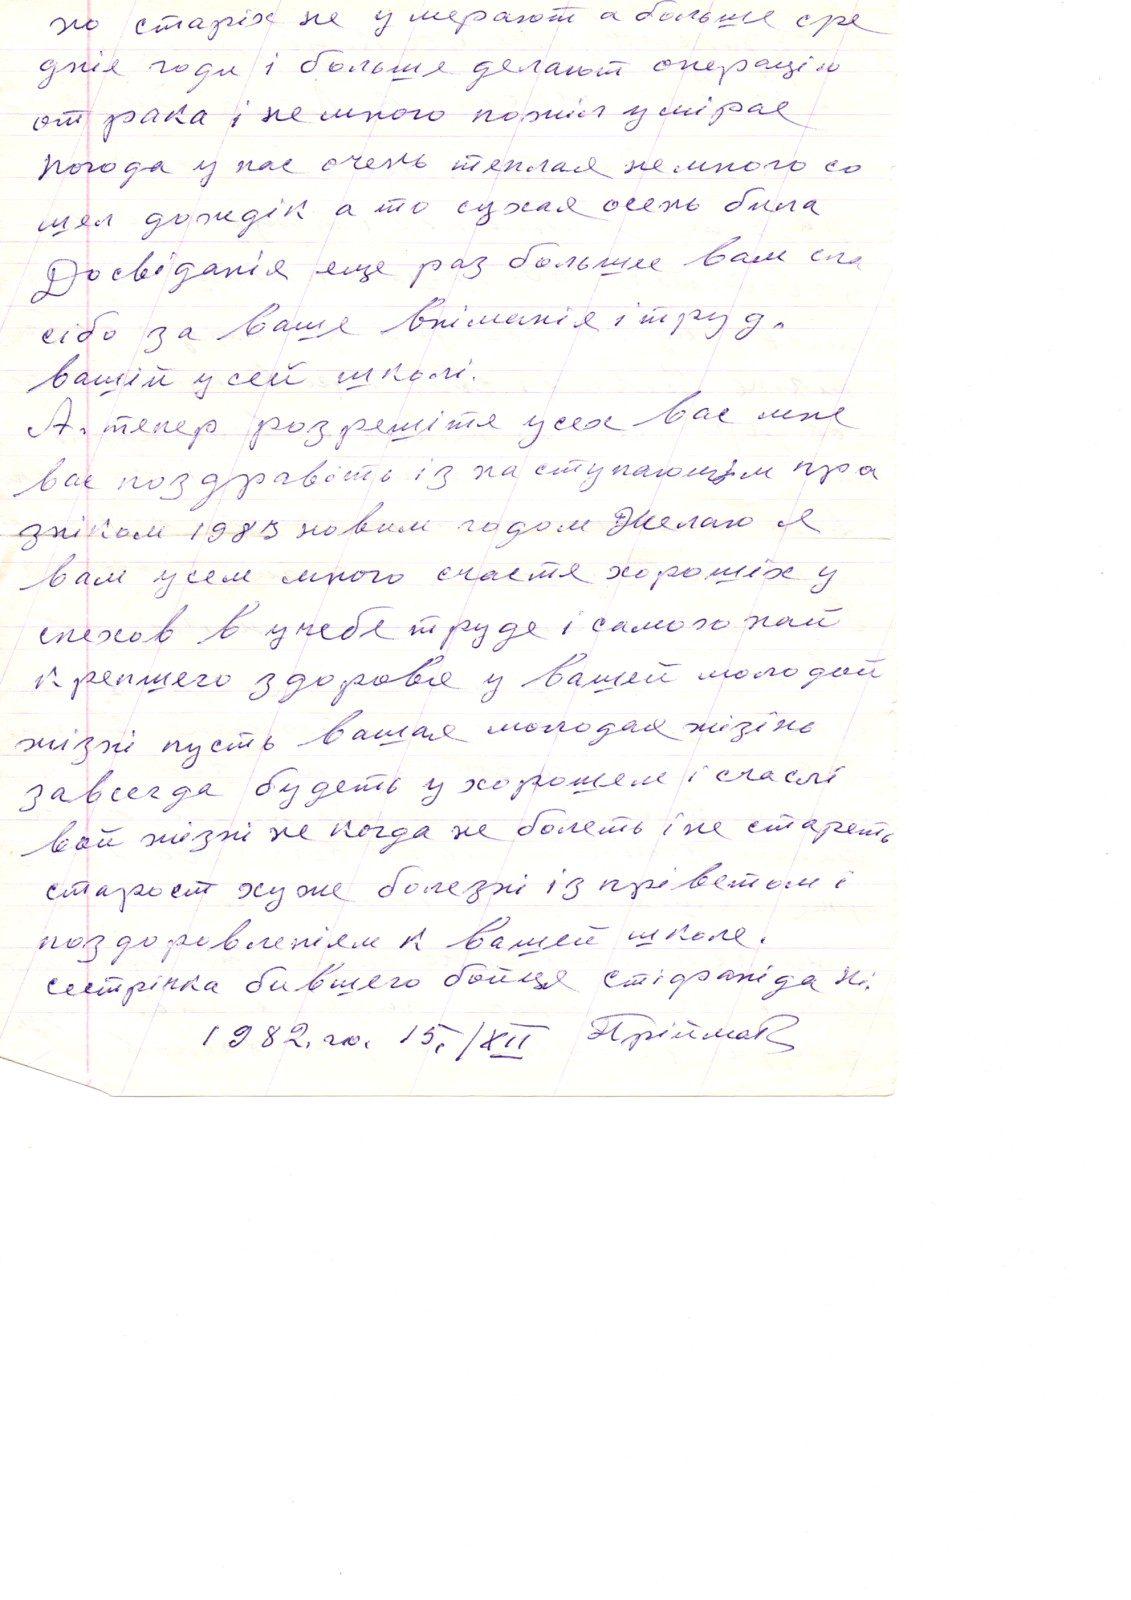 но старіх не умерают а больше сре
дніе годи і больше делают операцію
от рака і немного пожил умірае
погода у нас очень теплая немного со
шел дождік а то сухая осень била
Досвіданія еще раз большее вам спа
сібо за ваше вніманія і труд.
вашій усей школі.
А. тепер розрешіте усех вас мне
вас поздравіть із наступающім пра
зніком 1983 новим годом Желаю я
вам усем много счастя хорошіх у
спехов в учебе труде і самого най
крепшего здоровя у вашей молодой
жізні пусть вашая молодая жізінь
завсегда будеть у хорошем і счаслі
вой жізні не когда не болеть і не стареть
старост хуже болезні із пріветом і
поздоровленіем к вашей школе.
сестрінка бившего бойця стіфаніда Ні.
1982. го. 15./XII Пріймак